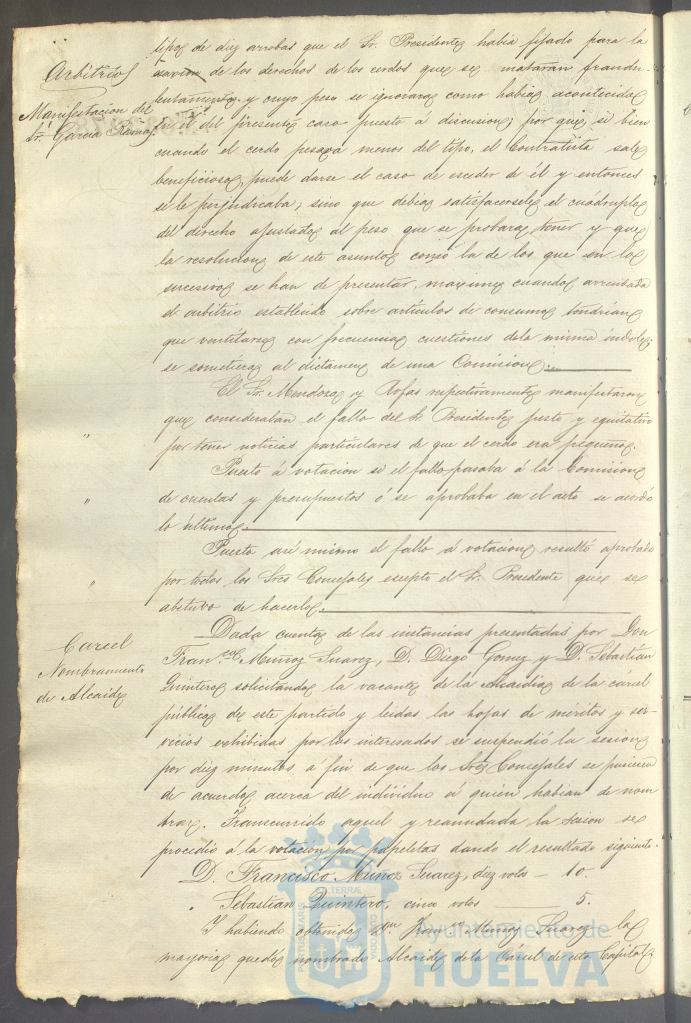 Arbitrios
Manifestacion del
Sr. Garcia Ramos
tipo de diez arrobas que el Sr. Presidente habia fijado para la
de los derechos de los cerdos que se mataran fraudu-
lentamente y cuyo peso se ignorara como habia acontecido
en el del presente caso puesto á discusion; por que si bien
cuando el cerdo pesara menos del tipo, el Contratista sale
beneficioso, puede darse el caso de esceder de él y entonces
se le perjudicaba; sino que debia satisfacersele el cuádruplo
del derecho ajustado al peso que se probara tener y que
la resolucion de este asunto como la de los que en lo
sucesivo se han de presentar, maxime cuando arrendado
el arbitrio establecido sobre articulos de consumo tendrian
que ventilarse con frecuencia cuestiones de la misma índole,
se sometiera al dictamen de una Comision.
El Sr. Mendoza y Rofas respectivamente manifestaron
que consideraban el fallo del Sr. Presidente justo y equitativo
por tener noticias particulares de que el cerdo era pequeño.
"
Puesto á votacion si el fallo pasaba á la Comision
de cuentas y presupuestos ó se aprobaba en el acto se acordó
lo último.
"
Puesto asi mismo el fallo á votacion resultó aprobado
por todos los Sres Concejales escepto el Sr. Presidente que se
abstuvo de hacerlo.
"
Carcel
Nombramiento
de Alcaide
Dada cuenta de las instancias presentadas por Don
Fran.co Muñoz Suarez, D. Diego Gomez y D. Sebastian
Quintero solicitando la vacante de la Alcaidia de la carcel
pública de este partido y leidas las hojas de méritos y ser-
vicios exhibidas por los interesados se suspendió la sesion
por diez minutos á fin de que los Sres Concejales se pusieran
de acuerdo acerca del individuo á quien habian de nom
brar. Transcurrido aquel y reanudada la sesion se
procedio á la votacion por papeletas dando el resultado siguiente.
D. Francisco Muñoz Suarez, diez votos — 10.
" Sebastian Quintero, cinco votos — 5.
Y habiendo obtenido Don Fran.co Muñoz Suarez la
mayoria quedó nombrado Alcaide de la Cárcel de esta Capital
Ayuntamiento de
HUELVA